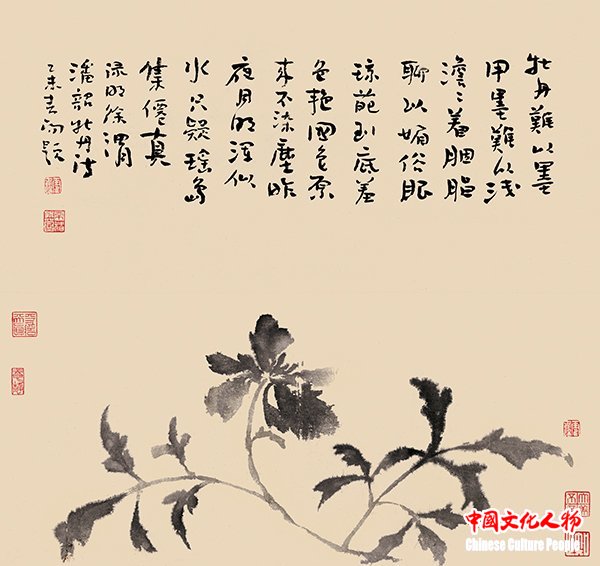 牡丹難以墨
甲墨難以浅
澹々着胭脂
聊以媚俗眼
琼葩到底羞
色艳国色原
来不染塵昨
夜月明浑似
水只疑瑶島
集僊真
录明徐渭
潘韶牡丹诗
乙未春题
中國文化人物
Chinese Culture People